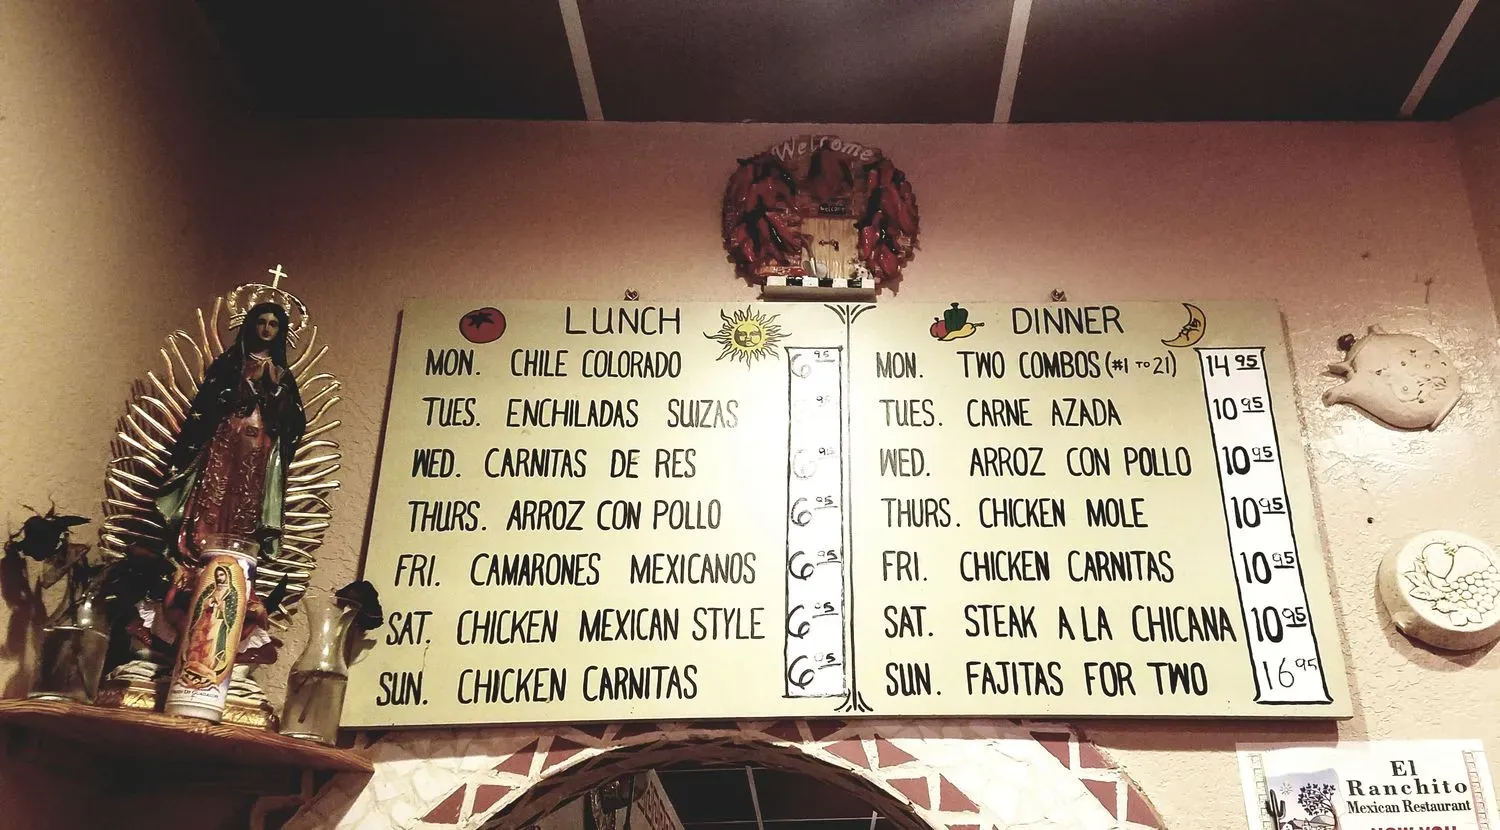 Welcome
WELCOME
LUNCH
MON. CHILE COLORADO 6 95
TUES. ENCHILADAS SUIZAS 95
WED. CARNITAS DE RES 6 95
THURS. ARROZ CON POLLO 6 95
FRI. CAMARONES MEXICANOS 6 95
SAT. CHICKEN MEXICAN STYLE 6 95
SUN. CHICKEN CARNITAS 6 95
DINNER
MON. TWO COMBOS (#1 TO 21) 14 95
TUES. CARNE AZADA 10 95
WED. ARROZ CON POLLO 10 95
THURS. CHICKEN MOLE 10 95
FRI. CHICKEN CARNITAS 10 95
SAT. STEAK A LA CHICANA 10 95
SUN. FAJITAS FOR TWO 16 95
El
Ranchito
Mexican Restaurant